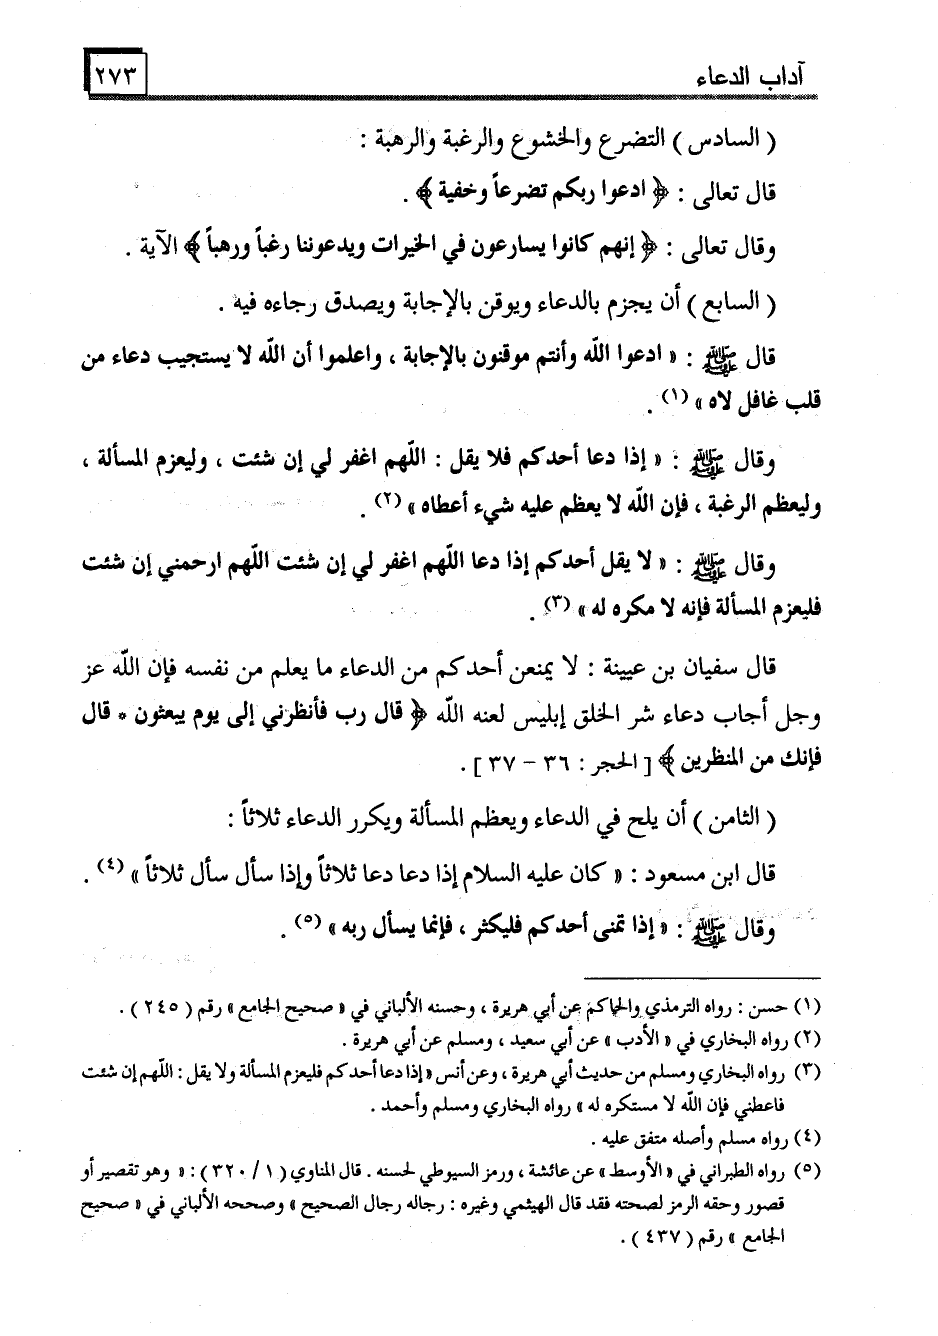 آداب الدعاء
٢٧٣
( السادس ) التضرع والخشوع والرغبة والرهبة :
قال تعالى : ﴿ ادعوا ربكم تضرعاً وخفية ﴾ .
وقال تعالى : ﴿ إنهم كانوا يسارعون في الخيرات ويدعوننا رغباً ورهباً ﴾ الآية .
( السابع ) أن يجزم بالدعاء ويوقن بالإجابة ويصدق رجاءه فيه .
قال ﷺ : « ادعوا الله وأنتم موقنون بالإجابة ، واعلموا أن الله لا يستجيب دعاء من
قلب غافل لاه » (١) .
وقال ﷺ : « إذا دعا أحدكم فلا يقل : اللهم اغفر لي إن شئت ، وليعزم المسألة ،
وليعظم الرغبة ، فإن الله لا يعظم عليه شيء أعطاه » (٢) .
وقال ﷺ : « لا يقل أحدكم إذا دعا اللهم اغفر لي إن شئت اللهم ارحمني إن شئت
فليعزم المسألة فإنه لا مكره له » (٣) .
قال سفيان بن عيينة : لا يمنعن أحدكم من الدعاء ما يعلم من نفسه فإن الله عز
وجل أجاب دعاء شر الخلق إبليس لعنه الله ﴿ قال رب فأنظرني إلى يوم يبعثون * قال
فإنك من المنظرين ﴾ [ الحجر : ٣٦ – ٣٧ ] .
( الثامن ) أن يلح في الدعاء ويعظم المسألة ويكرر الدعاء ثلاثاً :
قال ابن مسعود : « كان عليه السلام إذا دعا دعا ثلاثاً وإذا سأل سأل ثلاثاً » (٤) .
وقال ﷺ : « إذا تمنى أحدكم فليكثر ، فإنما يسأل ربه » (٥) .
(١) حسن : رواه الترمذي والحاكم عن أبي هريرة ، وحسنه الألباني في « صحيح الجامع » رقم ( ٢٤٥ ) .
(٢) رواه البخاري في « الأدب » عن أبي سعيد ، ومسلم عن أبي هريرة .
(٣) رواه البخاري ومسلم من حديث أبي هريرة ، وعن أنس « إذا دعا أحدكم فليعزم المسألة ولا يقل : اللهم إن شئت
فاعطني فإن الله لا مستكره له » رواه البخاري ومسلم وأحمد .
(٤) رواه مسلم وأصله متفق عليه .
(٥) رواه الطبراني في « الأوسط » عن عائشة ، ورمز السيوطي لحسنه . قال المناوي ( ١ / ٣٢٠ ) : « وهو تقصير أو
قصور وحقه الرمز لصحته فقد قال الهيثمي وغيره : رجاله رجال الصحيح » وصححه الألباني في « صحيح
الجامع » رقم ( ٤٣٧ ) .